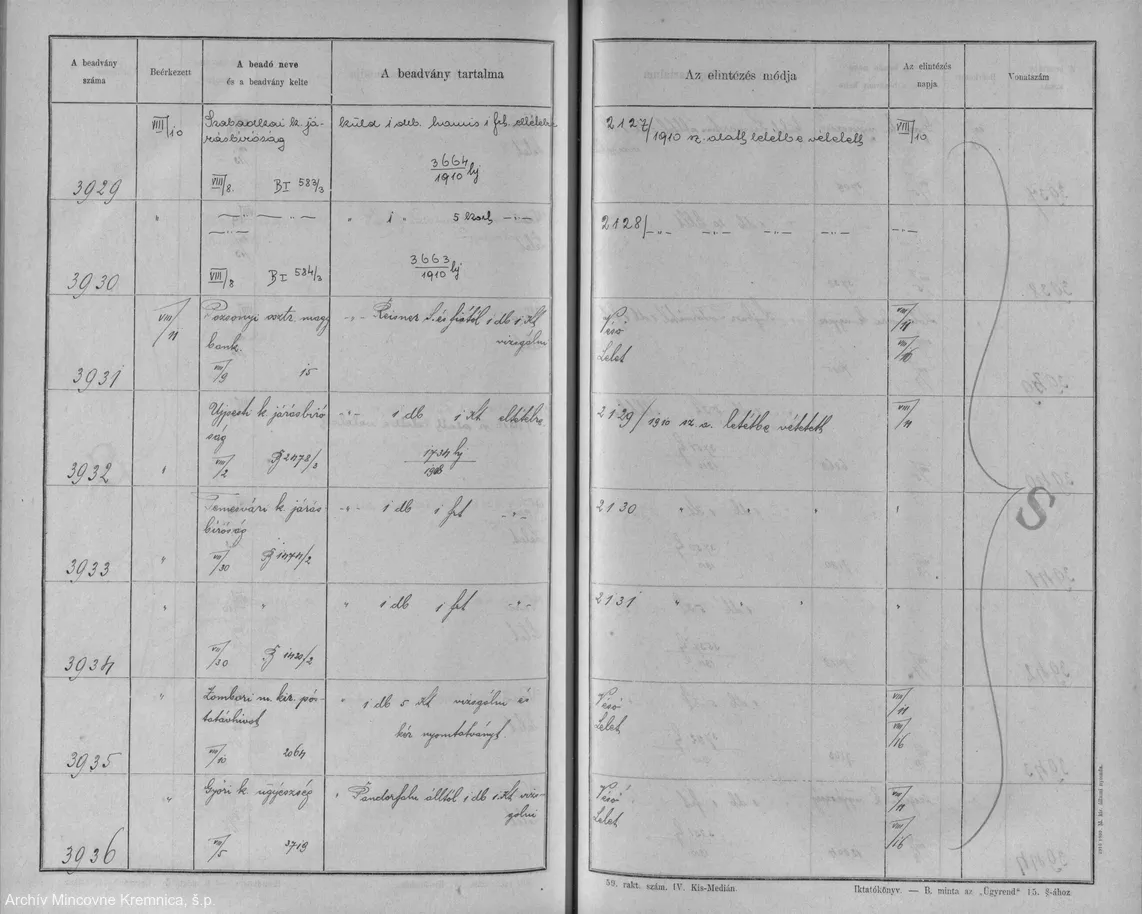 A beadvány száma
Beérkezett
A beadó neve és a beadvány kelte
A beadvány tartalma
Az elintézés módja
Az elintézés napja
Vonatszám
3929
VIII/10
Szabadkai k. já-
rásbiróság
VIII/8. BI 583/3
küld 1 drb. hamis 1 frt.
3664/1910
2127/1910 sz. alatt letétbe vétetett
VIII/10
3930
" 1 " 5 kor
VIII/8 BI 584/3
3663/1910
2128/
3931
VIII/11
Pozsonyi osztr. magy
bank.
VIII/9 15
Reisner S. és fiától 1 db 1 K
vizsgálni
Véső
Lelet
VIII/11
3932
Ujpesti k. járásbiró-
ság
VIII/2 2478/3
1 db 1 K eltételre
1734
2129/1910 sz. a. letétbe vétetett
VIII/11
3933
Temesvári k. járás-
biróság
VII/30 1474/2
1 db 1 frt
2130 " " "
3934
" "
VII/30 1420/2
" 1 db 1 frt
2131 " "
3935
"
Zombori m. kir. pós-
VIII/10 2064
" 1 db 5 K vizsgálni és
kér nyomtatványt
Véső
Lelet
VIII/11
VIII/16
3936
"
Győri k. ügyészség
VIII/5 3719
" 1 db 1 K vizs-
gálni
Véső
Lelet
VIII/11
VIII/16
S
59. rakt. szám. IV. Kis-Medián.
Iktatókönyv. — B. minta az „Ügyrend" 15. §-ához
Archív Mincovne Kremnica, š.p.